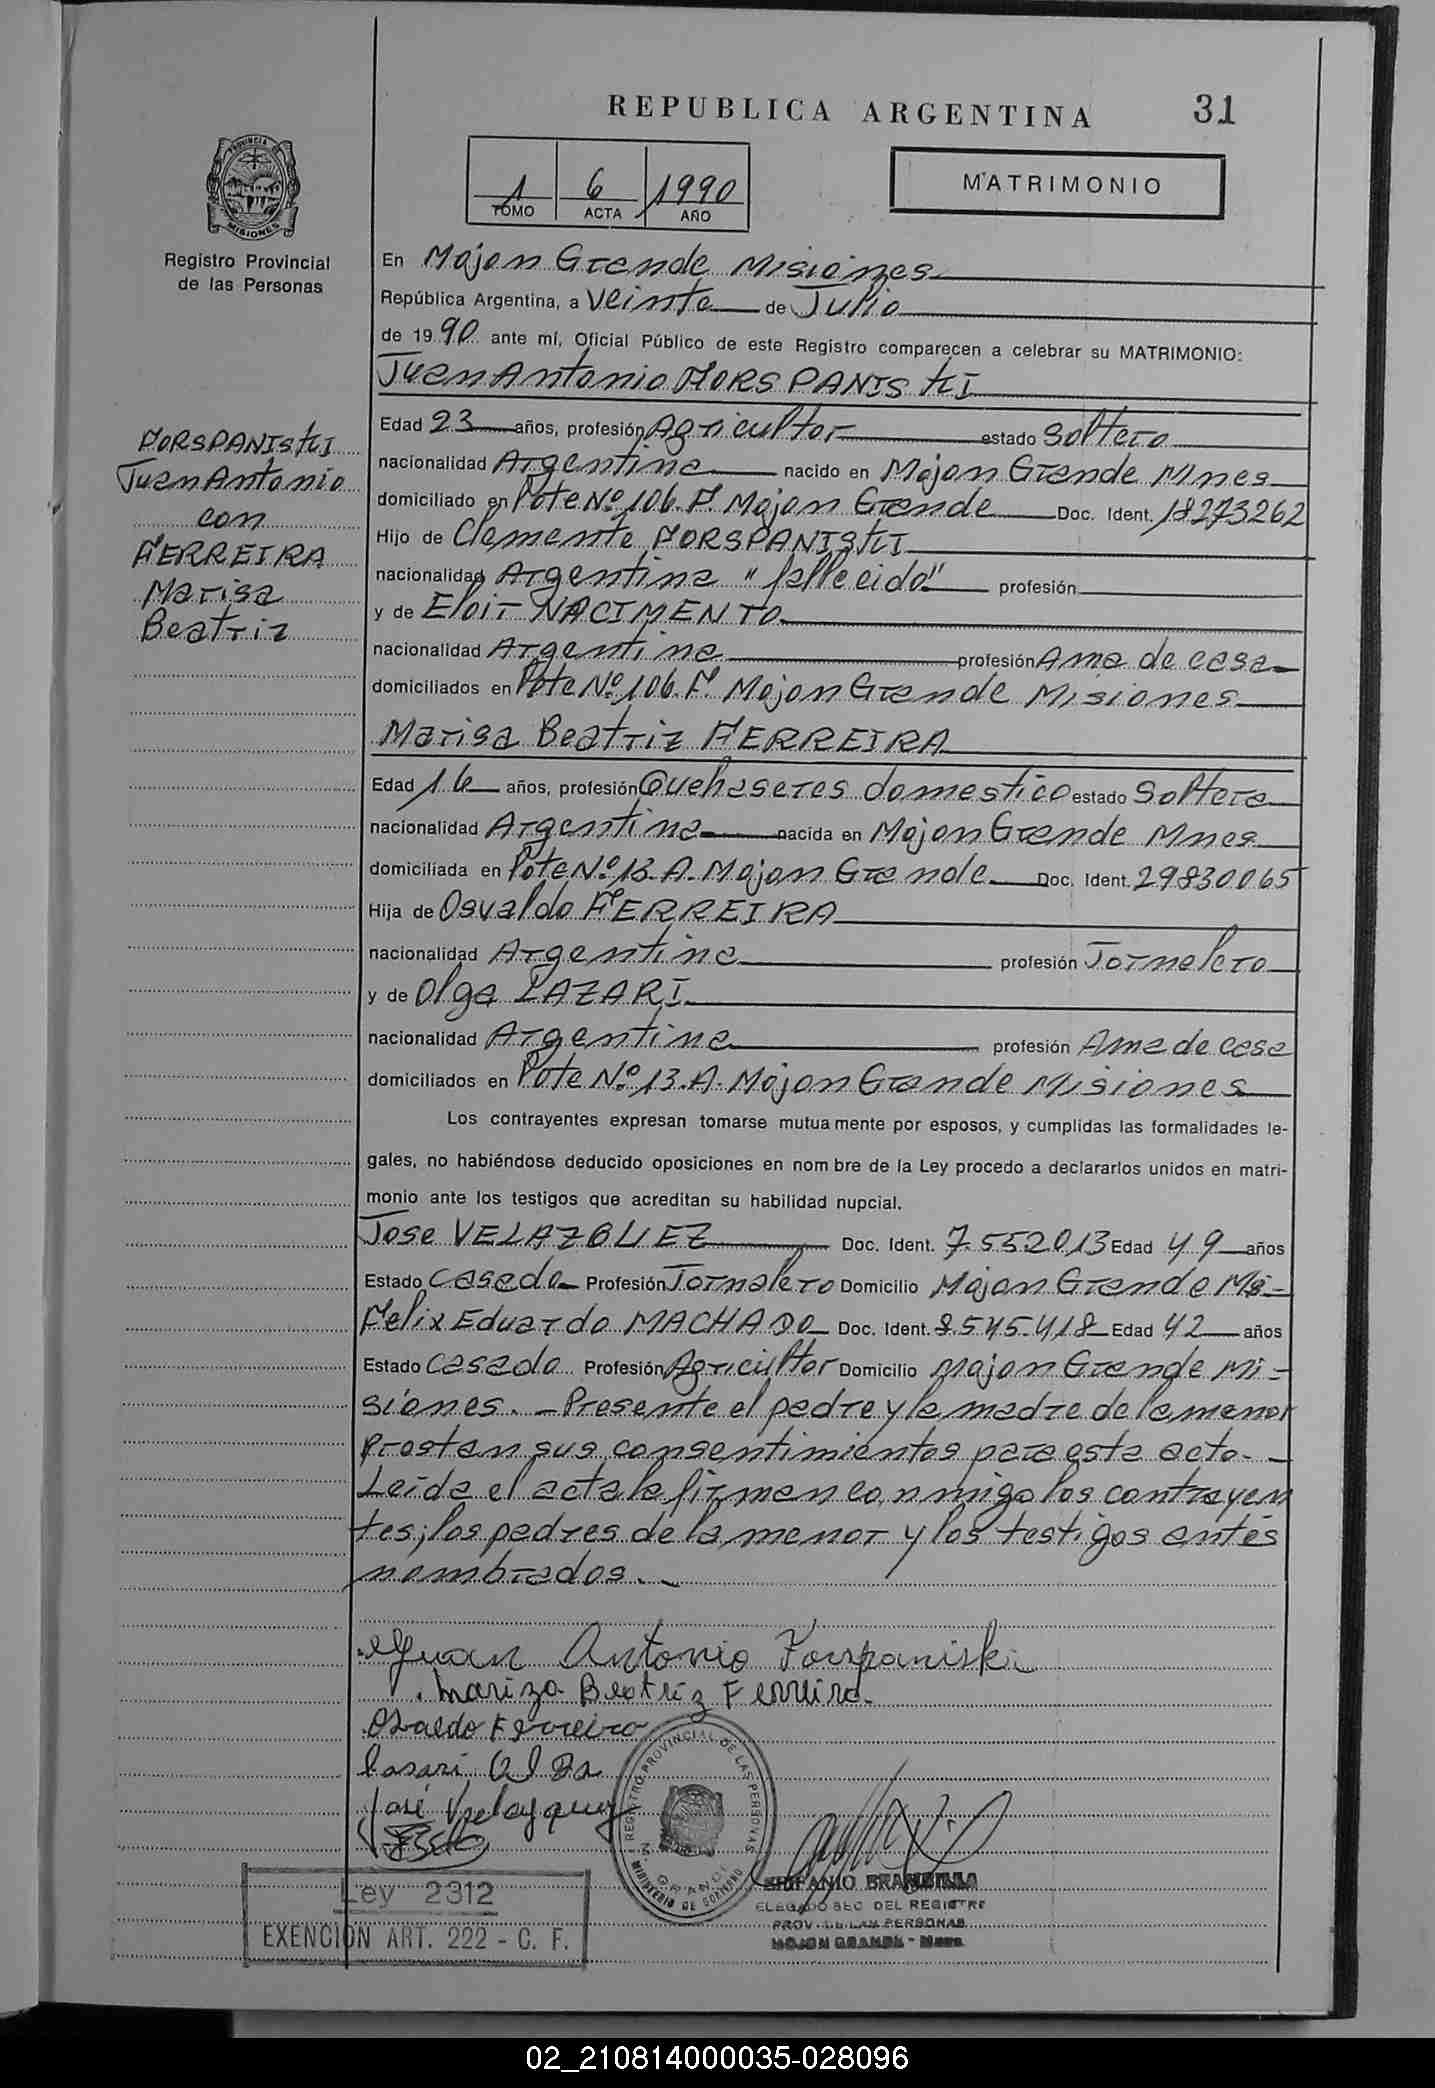 REPUBLICA ARGENTINA
31
1 6 1990
TOMO ACTA AÑO
MATRIMONIO
PROVINCIA DE
MISIONES
Registro Provincial
de las Personas
FORSPANISKI
Juan Antonio
con
FERREIRA
Marisa
Beatriz
En Mojon Grande Misiones
República Argentina, a Veinte de Julio
de 1990 ante mí, Oficial Público de este Registro comparecen a celebrar su MATRIMONIO:
Juan Antonio FORSPANISKI
Edad 23 años, profesión Agricultor estado Soltero
nacionalidad Argentina nacido en Mojon Grande Mnes
domiciliado en Lote Nº 106. F. Mojon Grande Doc. Ident. 18273262
Hijo de Clemente FORSPANISKI
nacionalidad Argentina "fallecido" profesión
y de Eloir NACIMENTO
nacionalidad Argentina profesión Ama de casa
domiciliados en Lote Nº 106. F. Mojon Grande Misiones
Marisa Beatriz FERREIRA
Edad 16 años, profesión Quehaseres domestico estado Soltera
nacionalidad Argentina nacida en Mojon Grande Mnes
domiciliada en Lote Nº 13. A. Mojon Grande Doc. Ident. 29830065
Hija de Osvaldo FERREIRA
nacionalidad Argentina profesión Jornalero
y de Olga LAZARI
nacionalidad Argentina profesión Ama de casa
domiciliados en Lote Nº 13. A. Mojon Grande Misiones
Los contrayentes expresan tomarse mutuamente por esposos, y cumplidas las formalidades le-
gales, no habiéndose deducido oposiciones en nombre de la Ley procedo a declararlos unidos en matri-
monio ante los testigos que acreditan su habilidad nupcial.
Jose VELAZQUEZ Doc. Ident. 7.552.013 Edad 49 años
Estado Casado Profesión Jornalero Domicilio Mojon Grande Ms-
Felix Eduardo MACHADO Doc. Ident. 8.545.418 Edad 42 años
Estado Casado Profesión Agricultor Domicilio Mojon Grande Mi-
siones. - Presente el padre y la madre de la menor
Prestan sus consentimientos para este acto. -
Leida el acta la firman conmigo los contrayen
tes; los padres de la menor y los testigos antes
nombrados. -
Juan Antonio Forspaniski
Mariza Beatriz Ferreira
Osvaldo Ferreira
Lasari Olga
José Velazquez
REGISTRO PROVINCIAL DE LAS PERSONAS
M. GRANDE
MINISTERIO DE GOBIERNO
Ley 2312
EXENCION ART. 222 - C. F.
EPIFANIO BRAMBILLA
ELEGADO SEC DEL REGISTRO
PROV. DE LAS PERSONAS
MOJON GRANDE - Mnes.
02_210814000035-028096